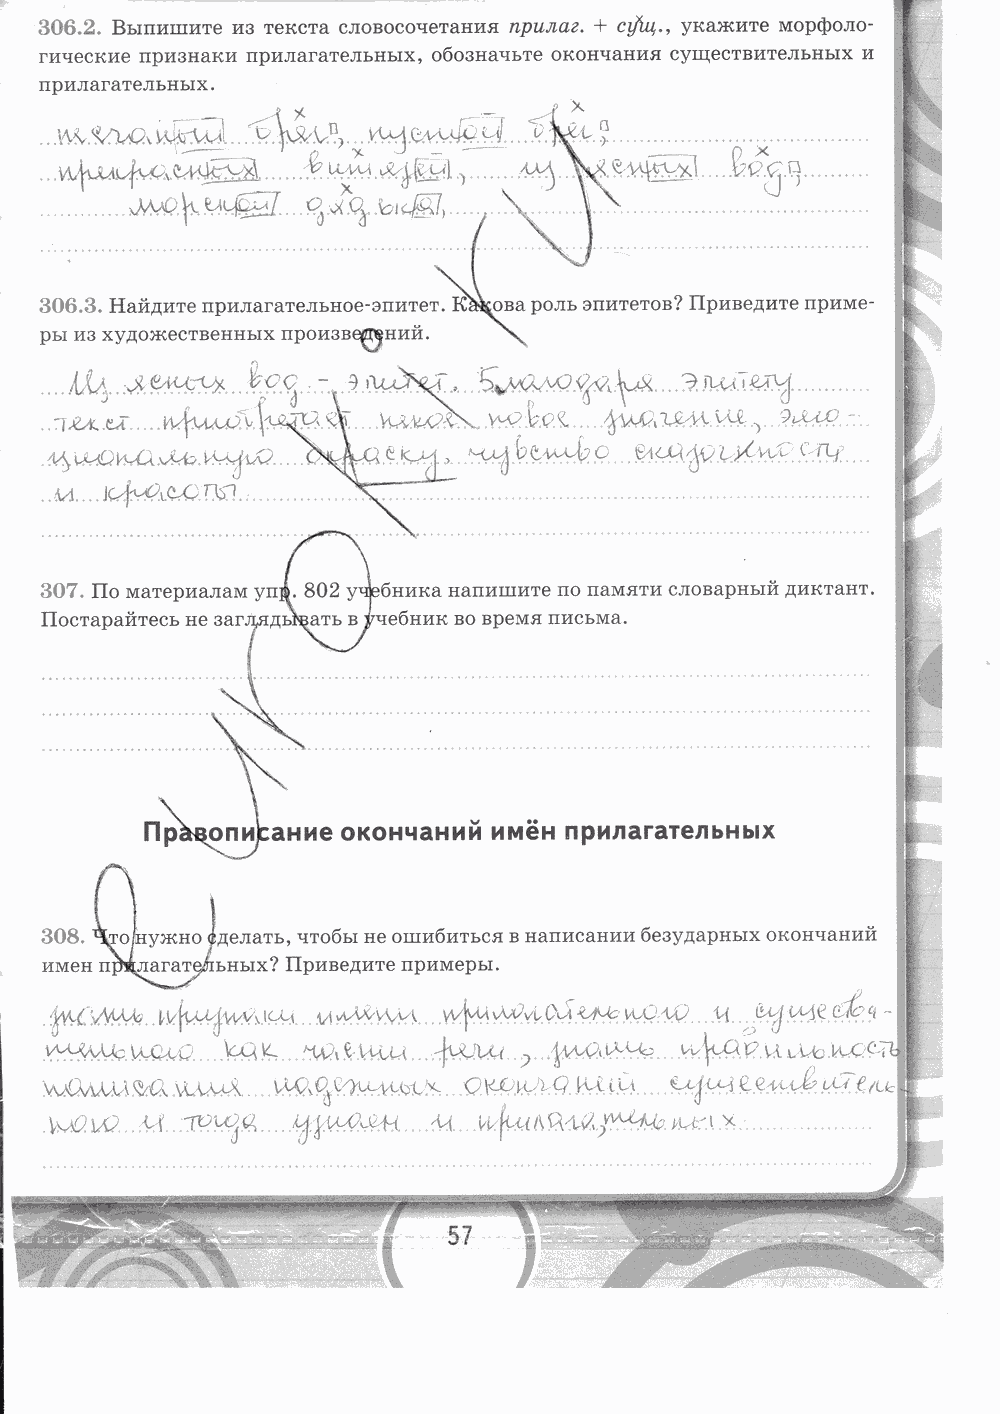 306.2. Выпишите из текста словосочетания прилаг. + сущ., укажите морфоло-
гические признаки прилагательных, обозначьте окончания существительных и
прилагательных.
песчаный брег, пустой брег,
прекрасных витязей, из ясных вод,
морской дядька,
306.3. Найдите прилагательное-эпитет. Какова роль эпитетов? Приведите приме-
ры из художественных произведений.
Из ясных вод - эпитет. Благодаря эпитету
текст приобретает некое новое значение, эмо-
циональную окраску, чувство сказочности
и красоты
307. По материалам упр. 802 учебника напишите по памяти словарный диктант.
Постарайтесь не заглядывать в учебник во время письма.
Правописание окончаний имён прилагательных
308. Что нужно сделать, чтобы не ошибиться в написании безударных окончаний
имен прилагательных? Приведите примеры.
знать признаки имени прилагательного и существи-
тельного как части речи, знать правильность
написания падежных окончаний существитель-
ного и тогда узнаем и прилагательных
57
euroki.ru